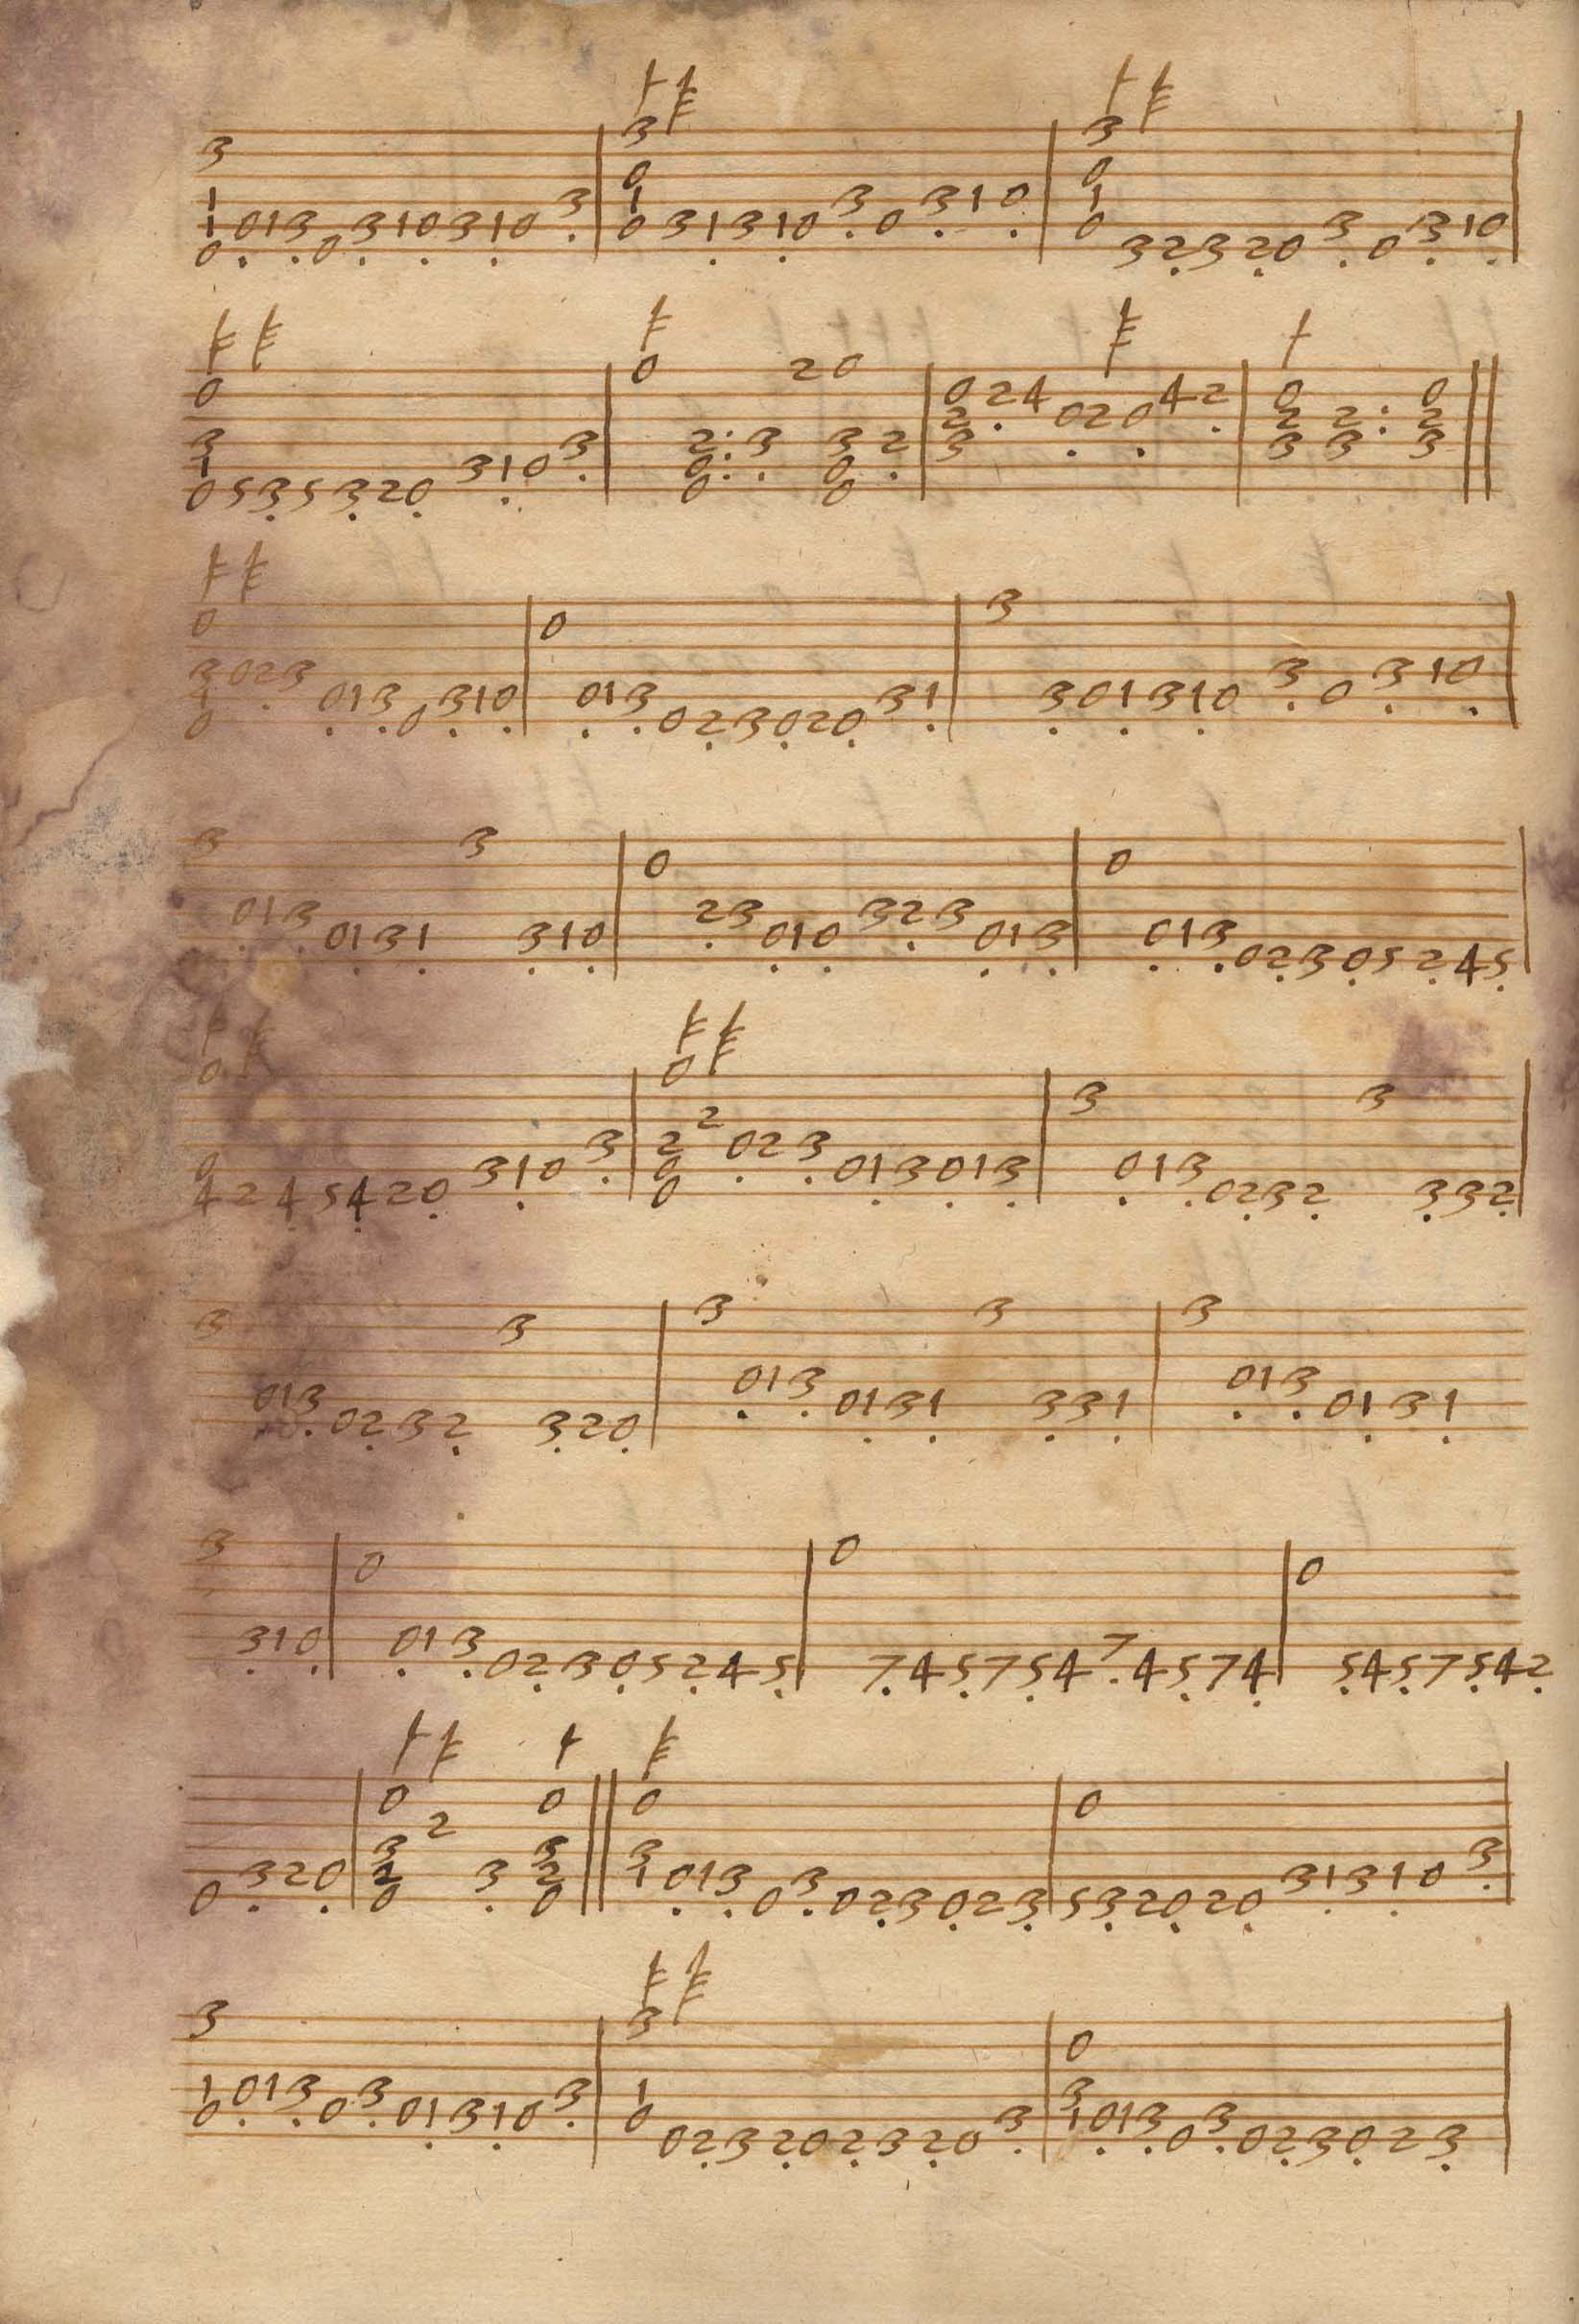 3 1 1 0 0 1 3 0 3 1 0 3 1 0 3 | 3 0 1 0 3 1 3 1 0 3 0 3 1 0 | 3 0 1 0 3 2 3 2 0 3 0 3 1 0 |
0 3 1 0 5 3 5 3 2 0 3 1 0 3 | 0 2 0 0 3 2 0 3 0 0 2 | 0 2 3 2 4 0 2 0 4 2 | 0 2 3 2 3 0 2 3 ||
0 3 1 0 0 2 3 0 1 3 0 3 1 0 | 0 0 1 3 0 2 3 0 2 0 3 1 | 3 3 0 1 3 1 0 3 0 3 1 0 |
3 0 1 3 0 1 3 1 3 3 1 0 | 0 2 3 0 1 0 3 2 3 0 1 3 | 0 0 1 3 0 2 3 0 5 2 4 5 |
0 0 4 2 4 5 4 2 0 3 1 0 3 | 0 2 0 0 2 0 2 3 0 1 3 0 1 3 | 3 0 1 3 0 2 3 2 3 3 3 2 |
3 0 1 3 0 2 3 2 3 3 2 0 | 3 0 1 3 0 1 3 1 3 3 3 1 | 3 0 1 3 0 1 3 1
3 3 1 0 | 0 0 1 3 0 2 3 0 5 2 4 5 | 0 7 4 5 7 5 4 7 4 5 7 4 | 0 5 4 5 7 5 4 2
0 3 2 0 | 0 3 2 0 2 3 0 3 2 0 || 0 3 1 0 1 3 0 3 0 2 3 0 2 3 | 0 5 3 2 0 2 0 3 1 3 1 0 3 |
3 1 0 0 1 3 0 3 0 1 3 1 0 3 | 3 1 0 0 2 3 2 0 2 3 2 0 3 | 0 3 1 0 1 3 0 3 0 2 3 0 2 3 |